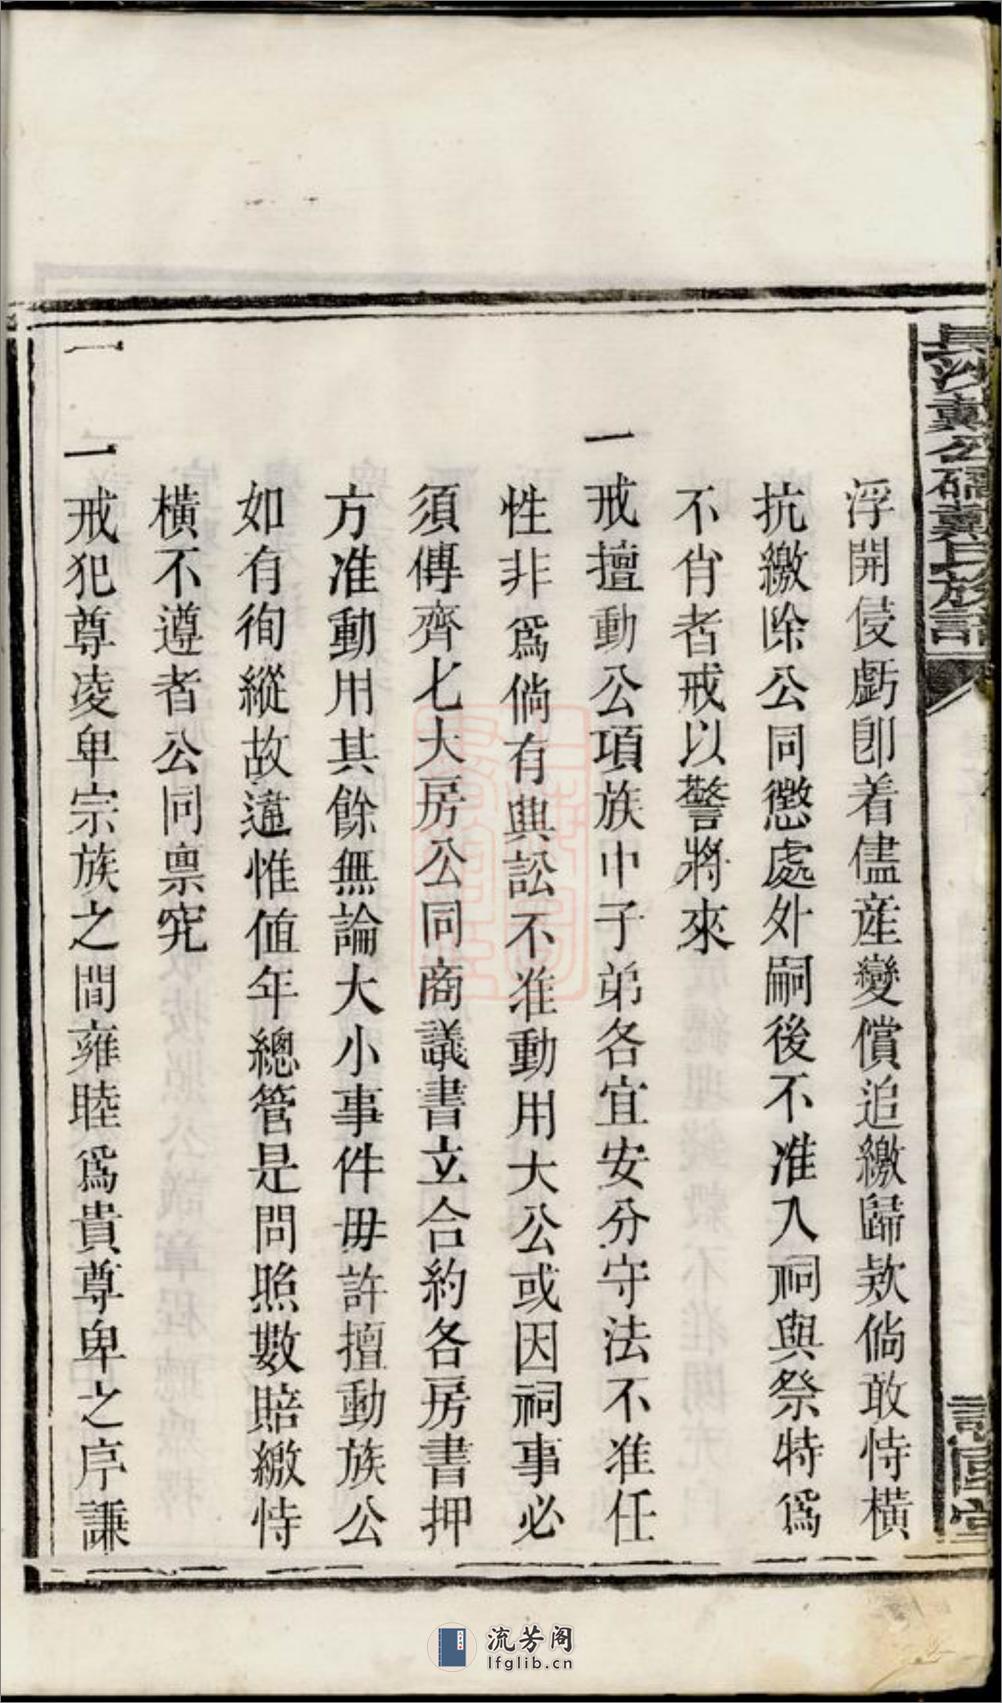 長沙戴公礄戴氏族譜
浮開侵虧卽着儘産變償追繳歸款倘敢恃橫
抗繳除公同懲處外嗣後不准入祠與祭特爲
不肖者戒以警將來
一戒擅動公項族中子弟各宜安分守法不准任
性非爲倘有與訟不准動用大公或因祠事必
須傳齊七大房公同商議書立合約各房書押
方准動用其餘無論大小事件毋許擅動族公
如有徇縱故違惟值年總管是問照數賠繳恃
橫不遵者公同禀究
一戒犯尊凌卑宗族之間雍睦爲貴尊卑之序謙
流芳阁
lfglib.cn